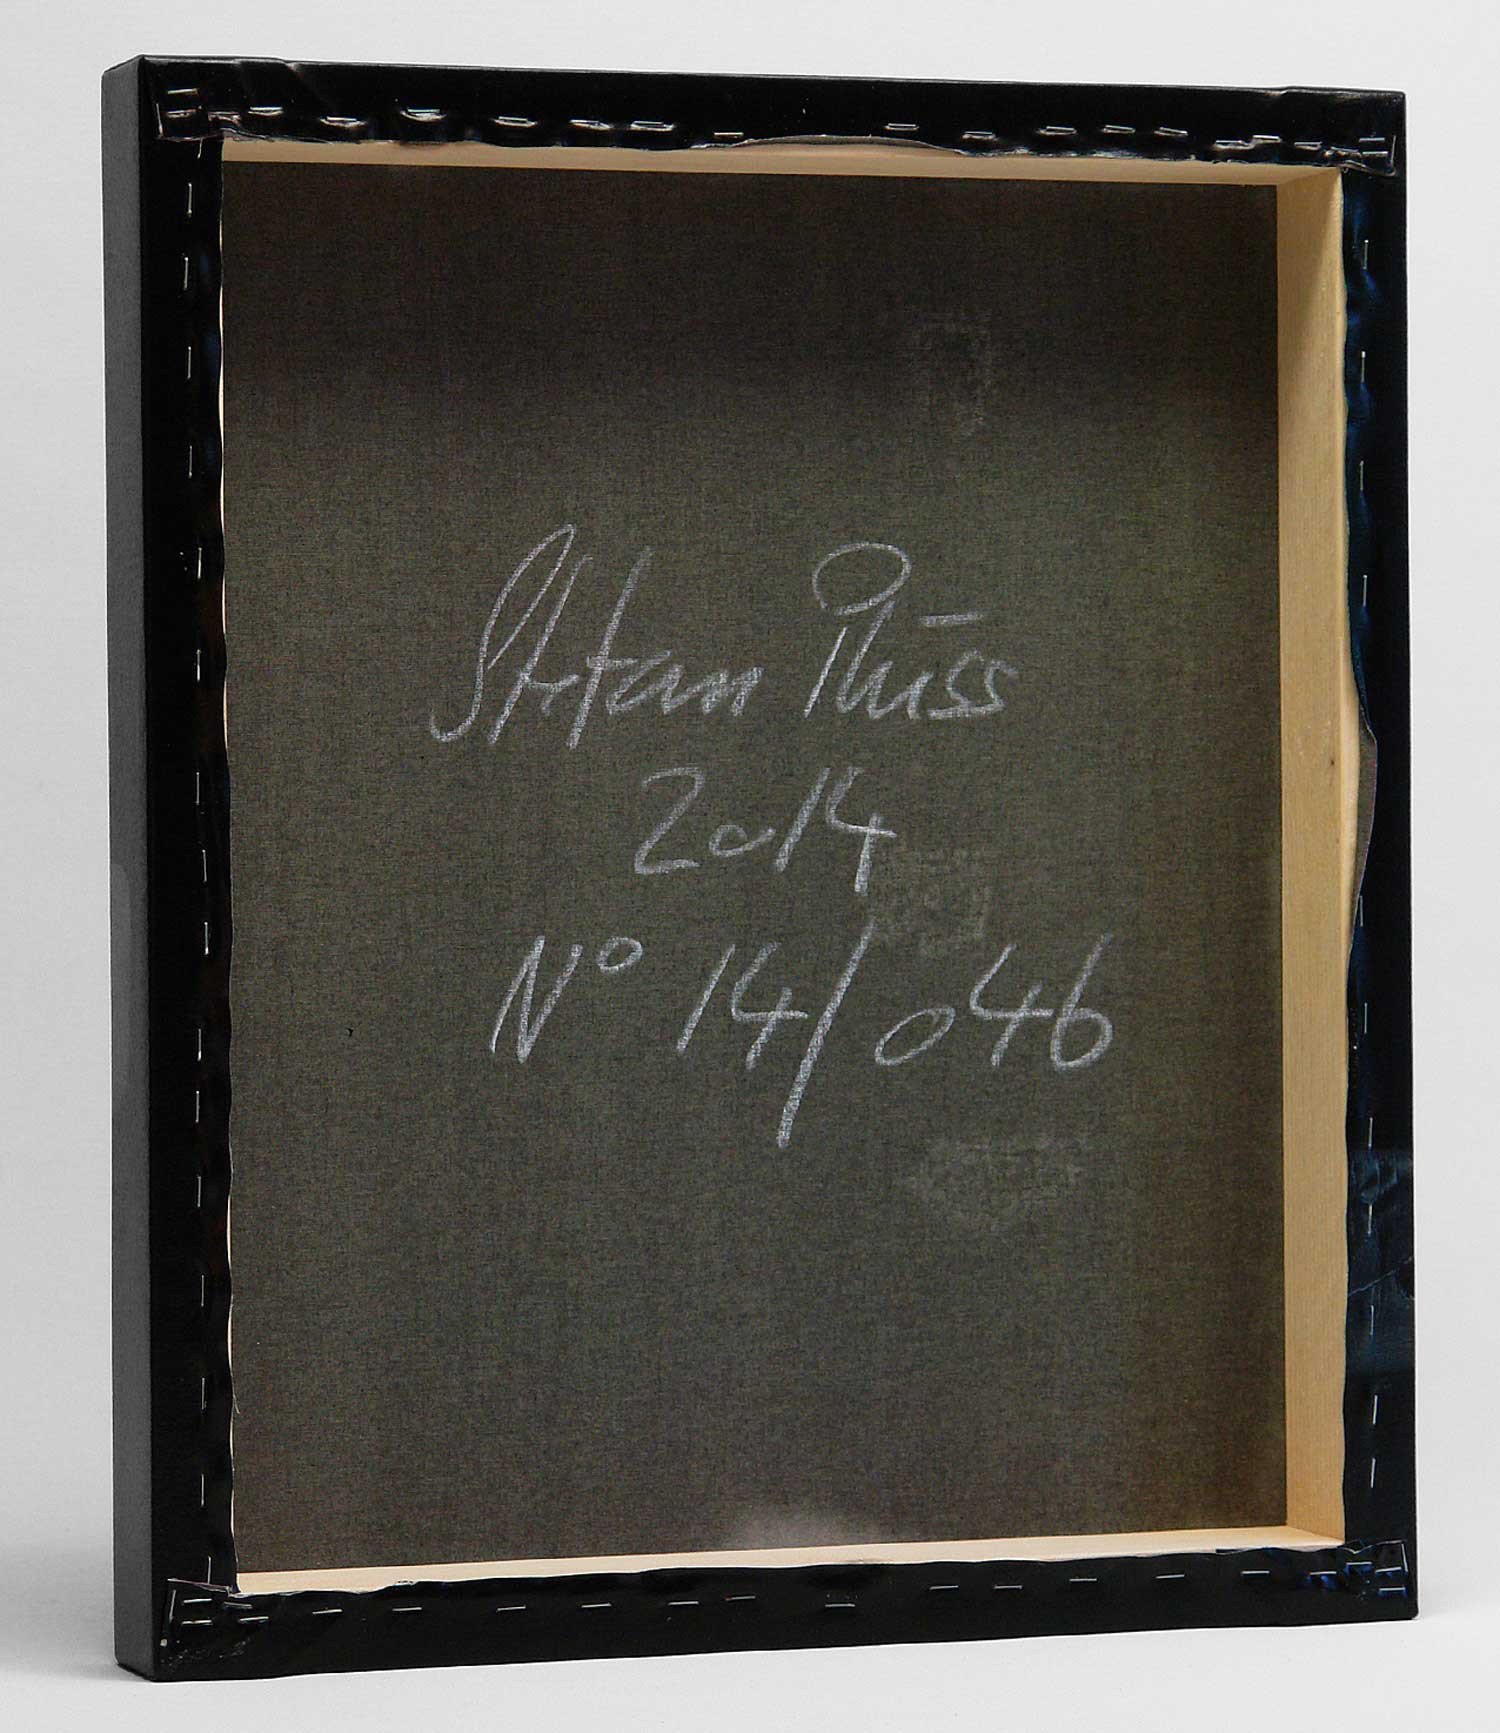 Stefan Plüss
2014
Nº 14/046